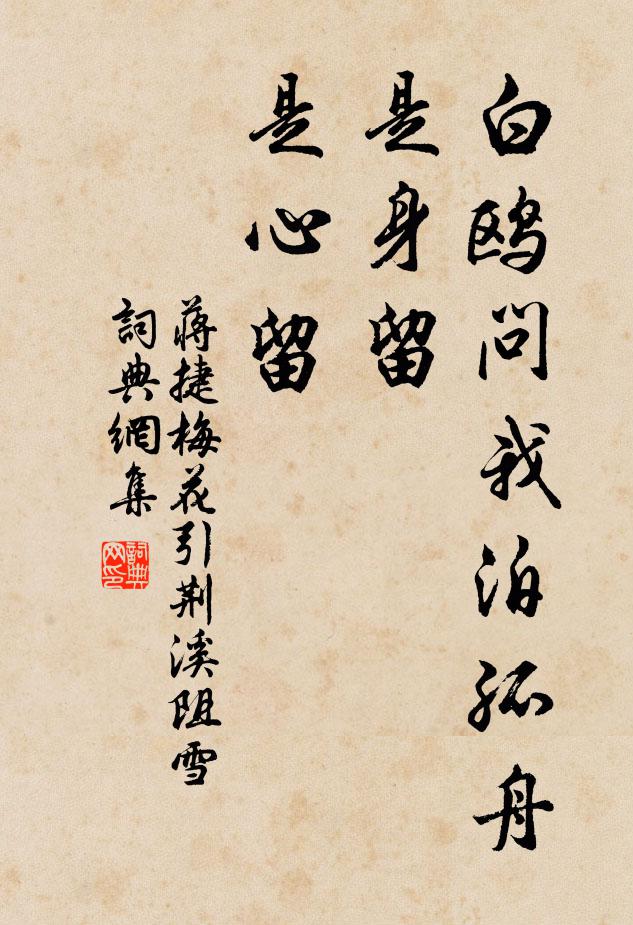 白鷗問我泊孤舟
是身留
是心留
蔣捷梅花引荆溪阻雪
詞典網集
詞典网印